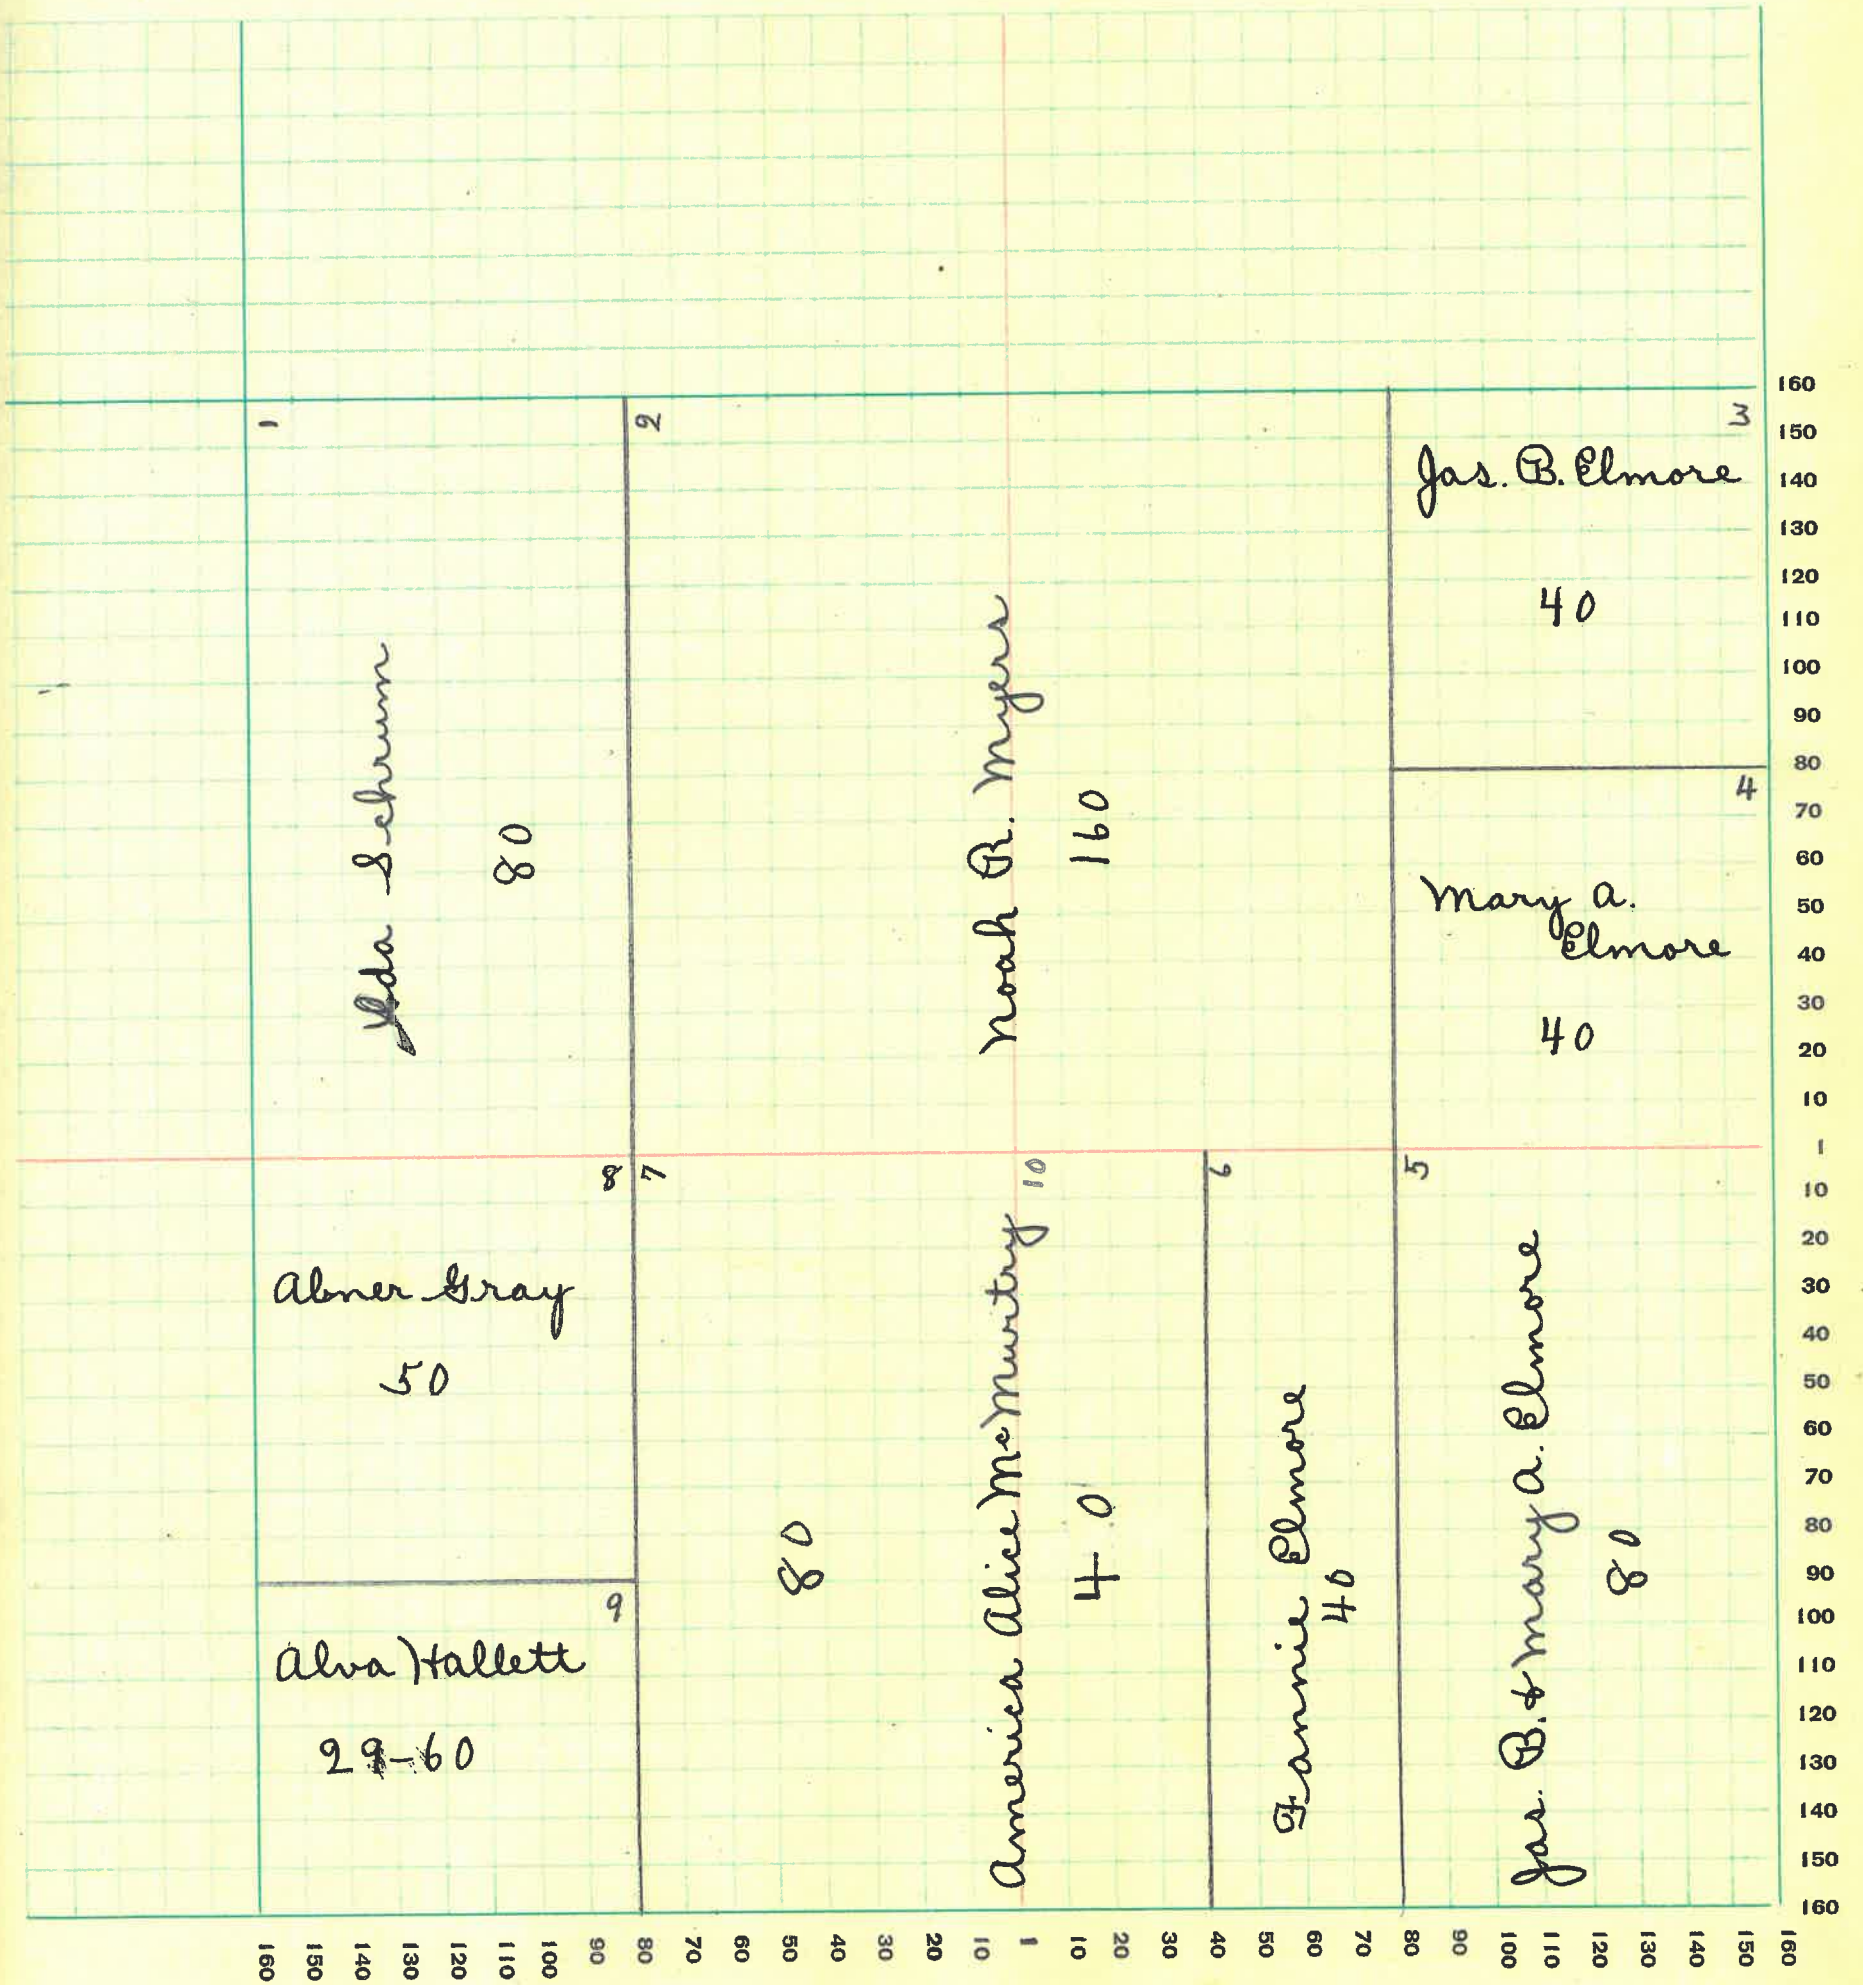 1
2
3
Jas. B. Elmore
40
Ida Schrum
80
Noah R. Myers
160
4
Mary A.
Elmore
40
8
7
10
6
5
Abner Gray
50
9
Alva Hallett
29-60
80
America Alice McMurtry
40
Fannie Elmore
40
Jas. B. & Mary A. Elmore
80
160
150
140
130
120
110
100
90
80
70
60
50
40
30
20
10
1
10
20
30
40
50
60
70
80
90
100
110
120
130
140
150
160
160 150 140 130 120 110 100 90 80 70 60 50 40 30 20 10 1 10 20 30 40 50 60 70 80 90 100 110 120 130 140 150 160